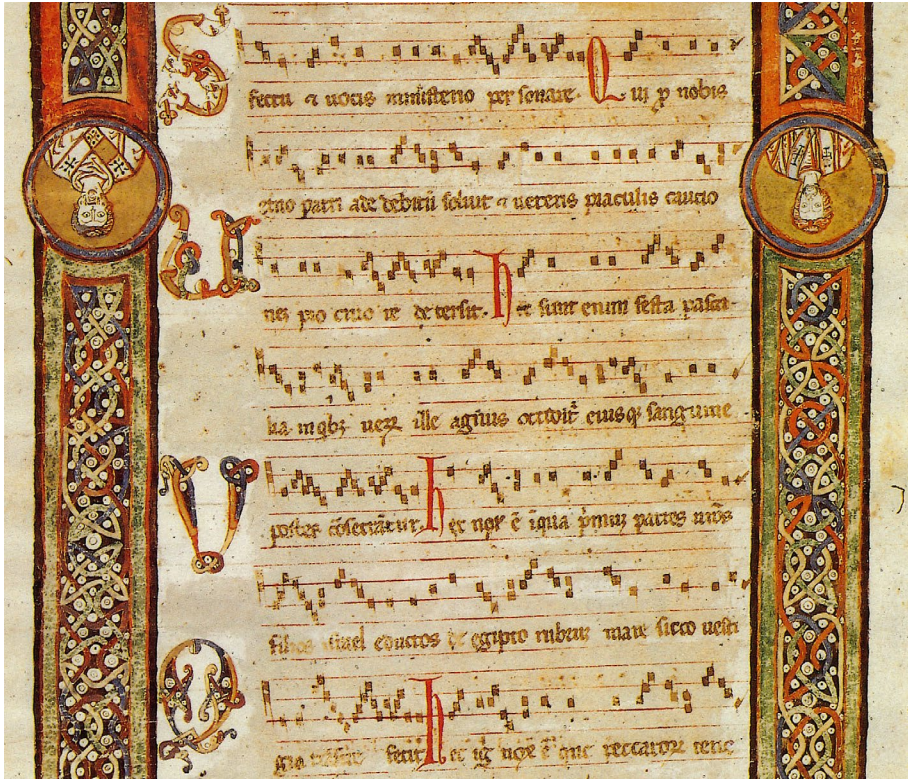 fectu & uocis ministerio per sonare. Qui ꝓ nobis
etno patri ade debitū soluit & ueteris piaculis cautio
nes pio cruo re de tersit. hec sunt enim festa pasca-
lia in qbꝫ uerꝰ ille agnus occidit eiusqꝫ sanguine
postes cōsecrātur. hec nox ē īqua p̄muꝫ patres nr̄os
filios israel eductos de egipto rubrū mare sicco uesti
gio fecit. hec ig̃ nox ē que peccatorꝝ tene